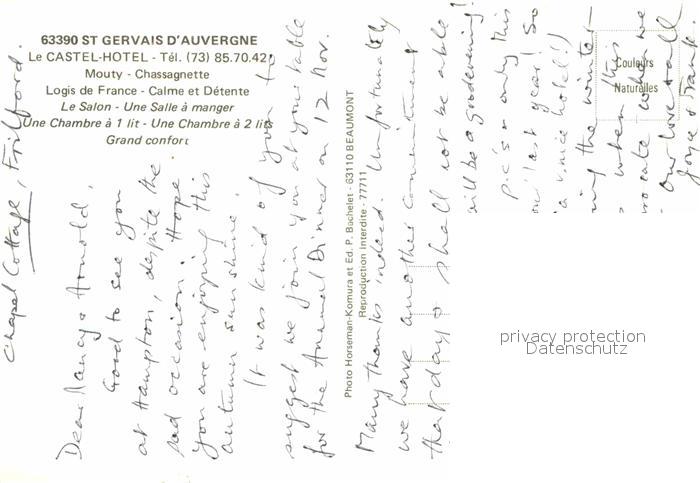 63390 ST GERVAIS D'AUVERGNE
Le CASTEL-HOTEL - Tél. (73) 85.70.42
Mouty - Chassagnette
Logis de France - Calme et Détente
Le Salon - Une Salle à manger
Une Chambre à 1 lit - Une Chambre à 2 lits
Grand confort
Photo Horseman-Komura et Ed. P. Bachelet - 63110 BEAUMONT
Reproduction Interdite - 77711
Couleurs
Naturelles
Chapel Cottage, Frilford.
Dear Nancy & Arnold,
Good to see you
at Hampton, despite the
sad occasion. Hope
you are enjoying this
autumn sunshine.
It was kind of you to
suggest we join you at your table
for the Annual Dinner on 12 Nov.
Many thanks indeed. Unfortunately
we have another commitment
that day & shall not be able
will be a good evening!
only this
last year! So
a nice hotel!)
the winter
when this
when we
Our love to all
Joyce & Frank.
privacy protection
Datenschutz